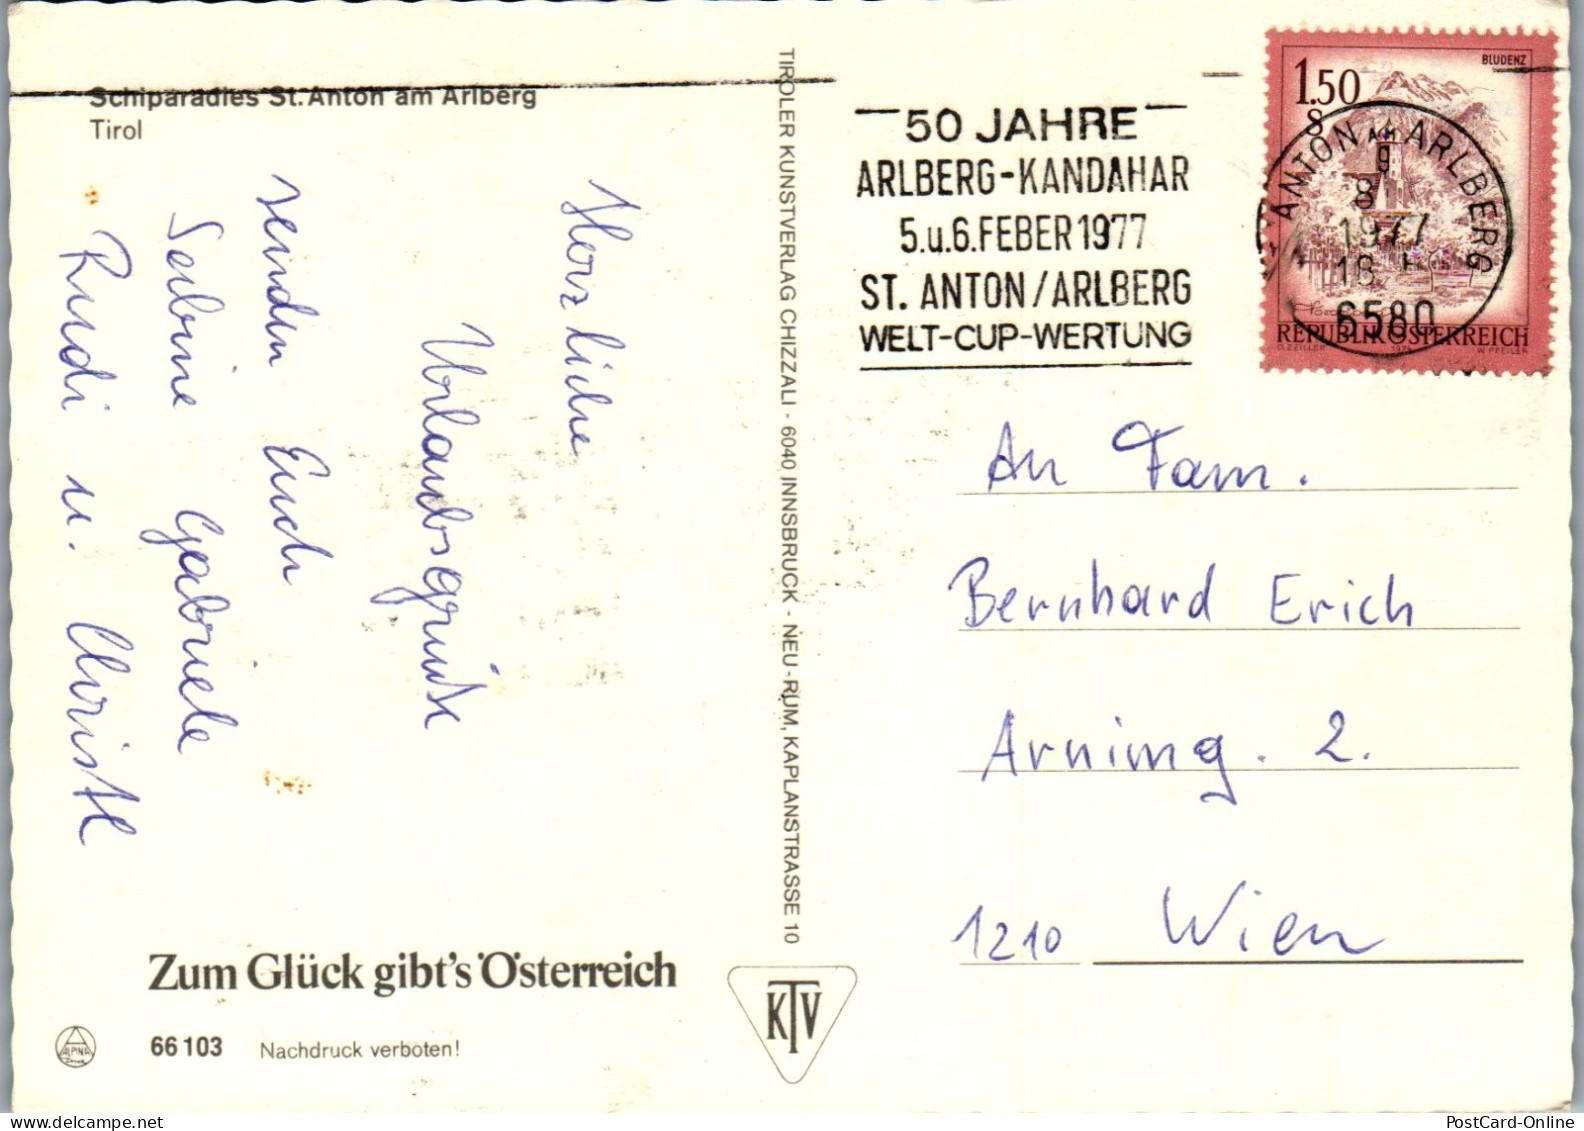 Schiparadies St. Anton am Arlberg
Tirol
Herzliche
Urlaubsgrüße
senden Euch
Sabine Gabriele
Rudi u. Christl
Zum Glück gibt's Österreich
66 103 Nachdruck verboten!
ALPINA
TIROLER KUNSTVERLAG CHIZZALI - 6040 INNSBRUCK - NEU-RUM, KAPLANSTRASSE 10
KTV
50 JAHRE
ARLBERG-KANDAHAR
5.u.6.FEBER 1977
ST. ANTON/ARLBERG
WELT-CUP-WERTUNG
BLUDENZ
1.50
S
REPUBLIK ÖSTERREICH
O. ZEILLER 1974 W. PFEILER
ST. ANTON AM ARLBERG
g
8
1977
18
6580
An Fam.
Bernhard Erich
Arnimg. 2.
1210 Wien
PostCard-Online